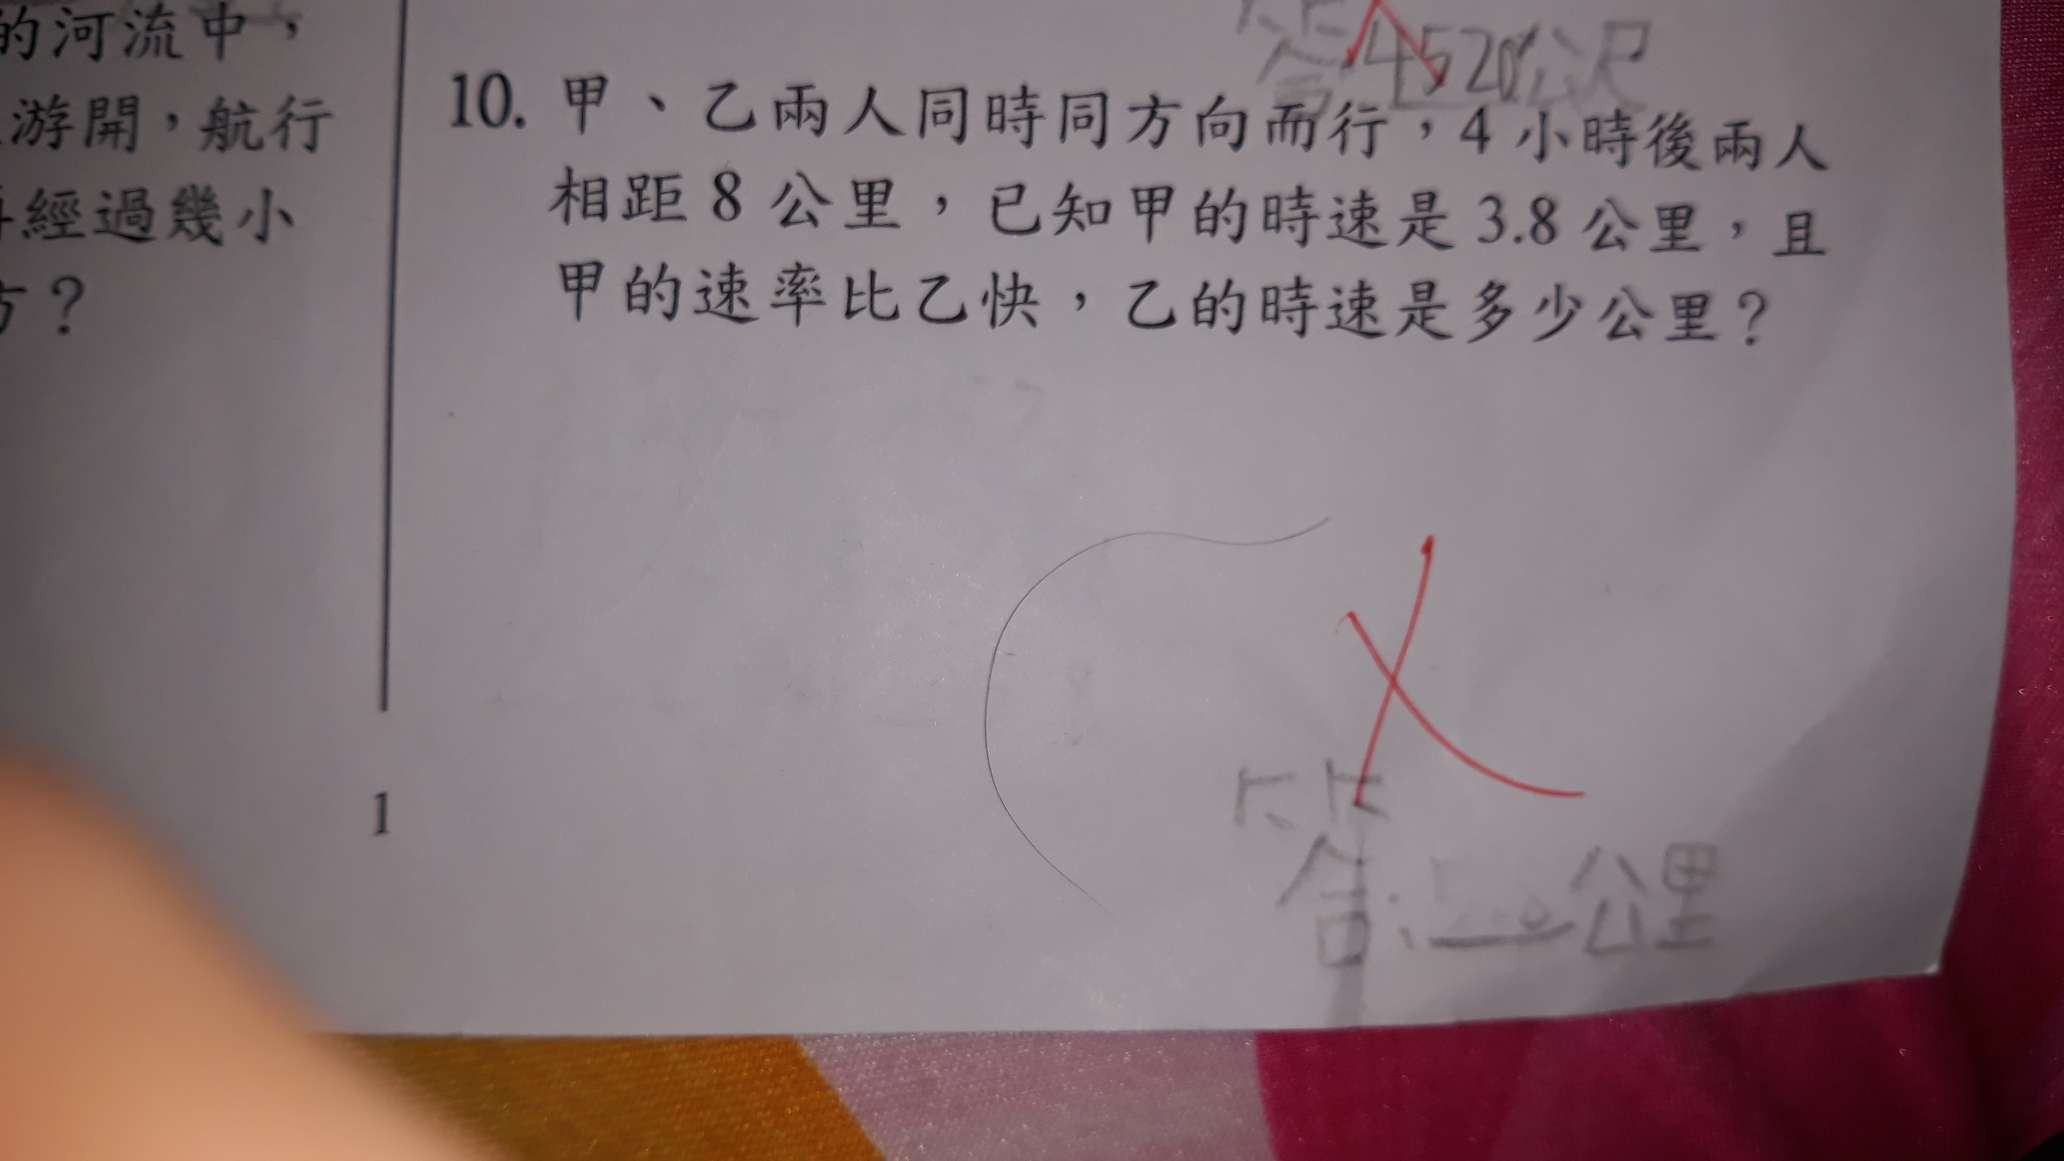 的河流中，
游開，航行
經過幾小
方？
答4520公尺
10. 甲、乙兩人同時同方向而行，4 小時後兩人
相距 8 公里，已知甲的時速是 3.8 公里，且
甲的速率比乙快，乙的時速是多少公里？
答：公里
1